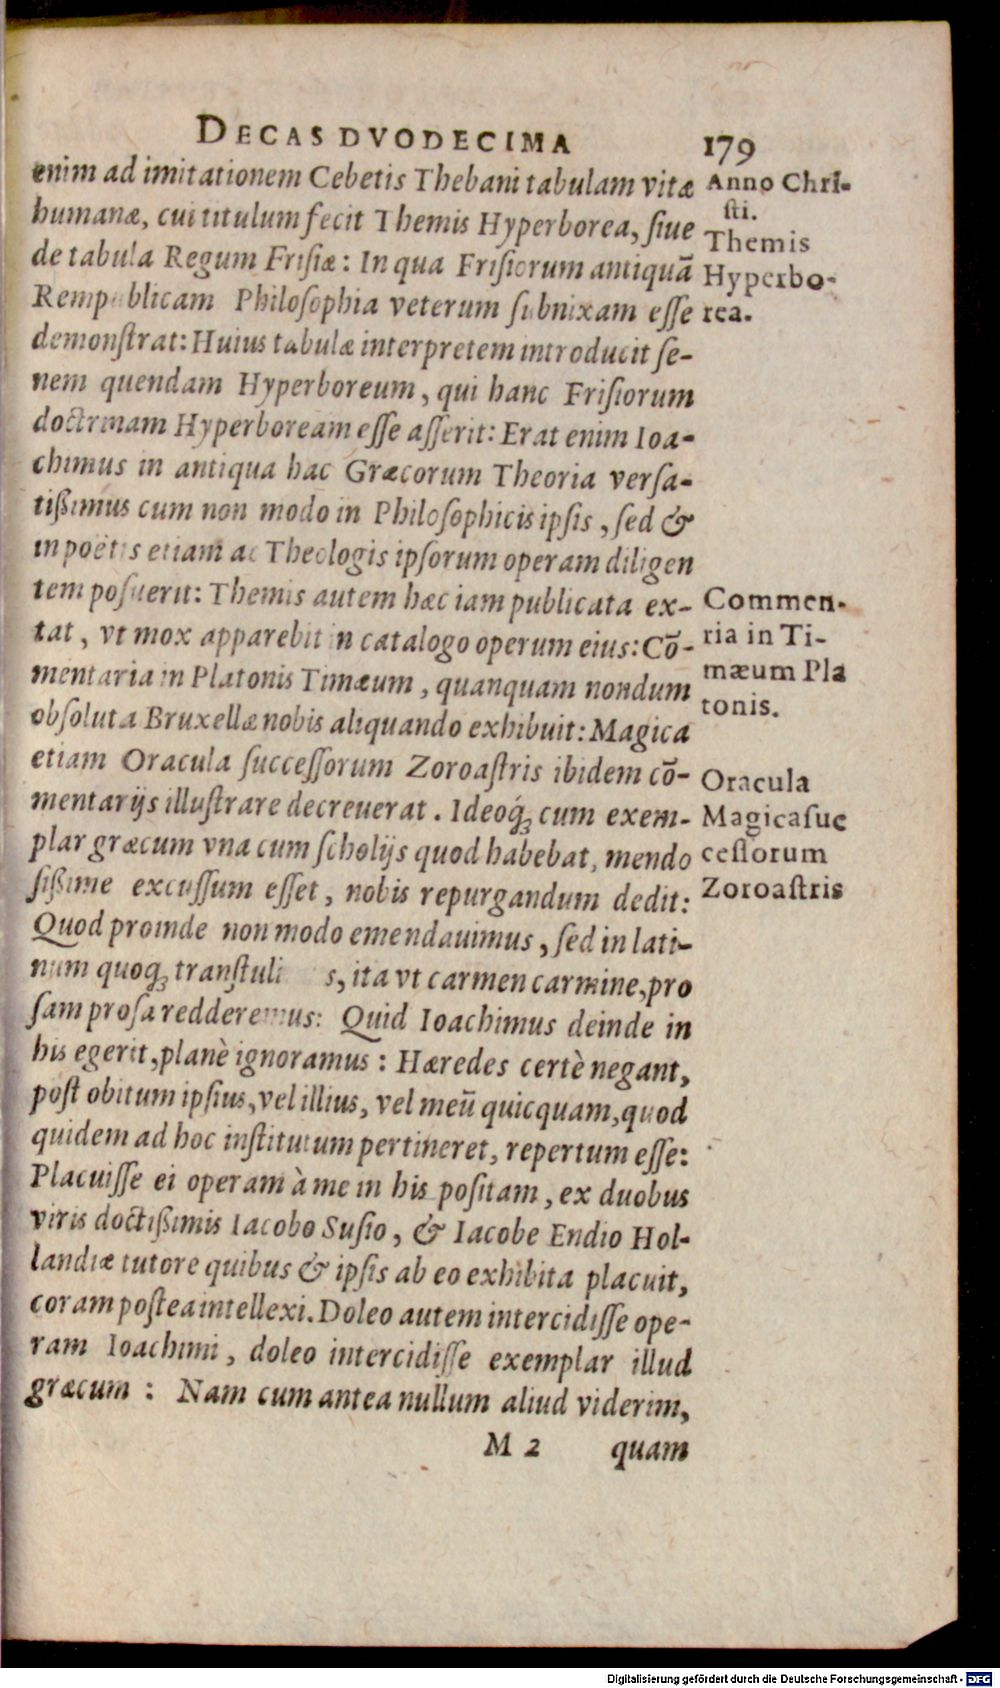 DECAS DVODECIMA 179
enim ad imitationem Cebetis Thebani tabulam vitæ
humanæ, cui titulum fecit Themis Hyperborea, ſiue
de tabula Regum Friſiæ: In qua Friſiorum antiquā
Rempublicam Philoſophia veterum ſubnixam eſſe
demonſtrat: Huius tabulæ interpretem introducit ſe-
nem quendam Hyperboreum, qui hanc Friſiorum
doctrinam Hyperboream eſſe aſſerit: Erat enim Ioa-
chimus in antiqua hac Græcorum Theoria verſa-
tißimus cum non modo in Philoſophicis ipſis, ſed &
in poëtis etiam ac Theologis ipſorum operam diligen
tem poſuerit: Themis autem hæc iam publicata ex-
tat, vt mox apparebit in catalogo operum eius: Cō-
mentaria in Platonis Timæum, quanquam nondum
obſoluta Bruxellæ nobis aliquando exhibuit: Magica
etiam Oracula ſucceſſorum Zoroaſtris ibidem cō-
mentarijs illuſtrare decreuerat. Ideoq́; cum exem-
plar græcum vna cum ſcholijs quod habebat, mendo
ſißime excuſſum eſſet, nobis repurgandum dedit:
Quod proinde non modo emendauimus, ſed in lati-
num quoq; tranſtuli s, ita vt carmen carmine, pro
ſam proſa redderemus: Quid Ioachimus deinde in
his egerit, planè ignoramus: Hæredes certè negant,
poſt obitum ipſius, vel illius, vel meū quicquam, quod
quidem ad hoc inſtitutum pertineret, repertum eſſe:
Placuiſſe ei operam à me in his poſitam, ex duobus
viris doctißimis Iacobo Suſio, & Iacobe Endio Hol-
landiæ tutore quibus & ipſis ab eo exhibita placuit,
coram poſtea intellexi. Doleo autem intercidiſſe ope-
ram Ioachimi, doleo intercidiſſe exemplar illud
græcum: Nam cum antea nullum aliud viderim,
M 2 quam
Anno Chri-
ſti.
Themis
Hyperbo-
rea.
Commen-
ria in Ti-
mæum Pla
tonis.
Oracula
Magica ſuc
ceſſorum
Zoroaſtris
Digitalisierung gefördert durch die Deutsche Forschungsgemeinschaft - DFG